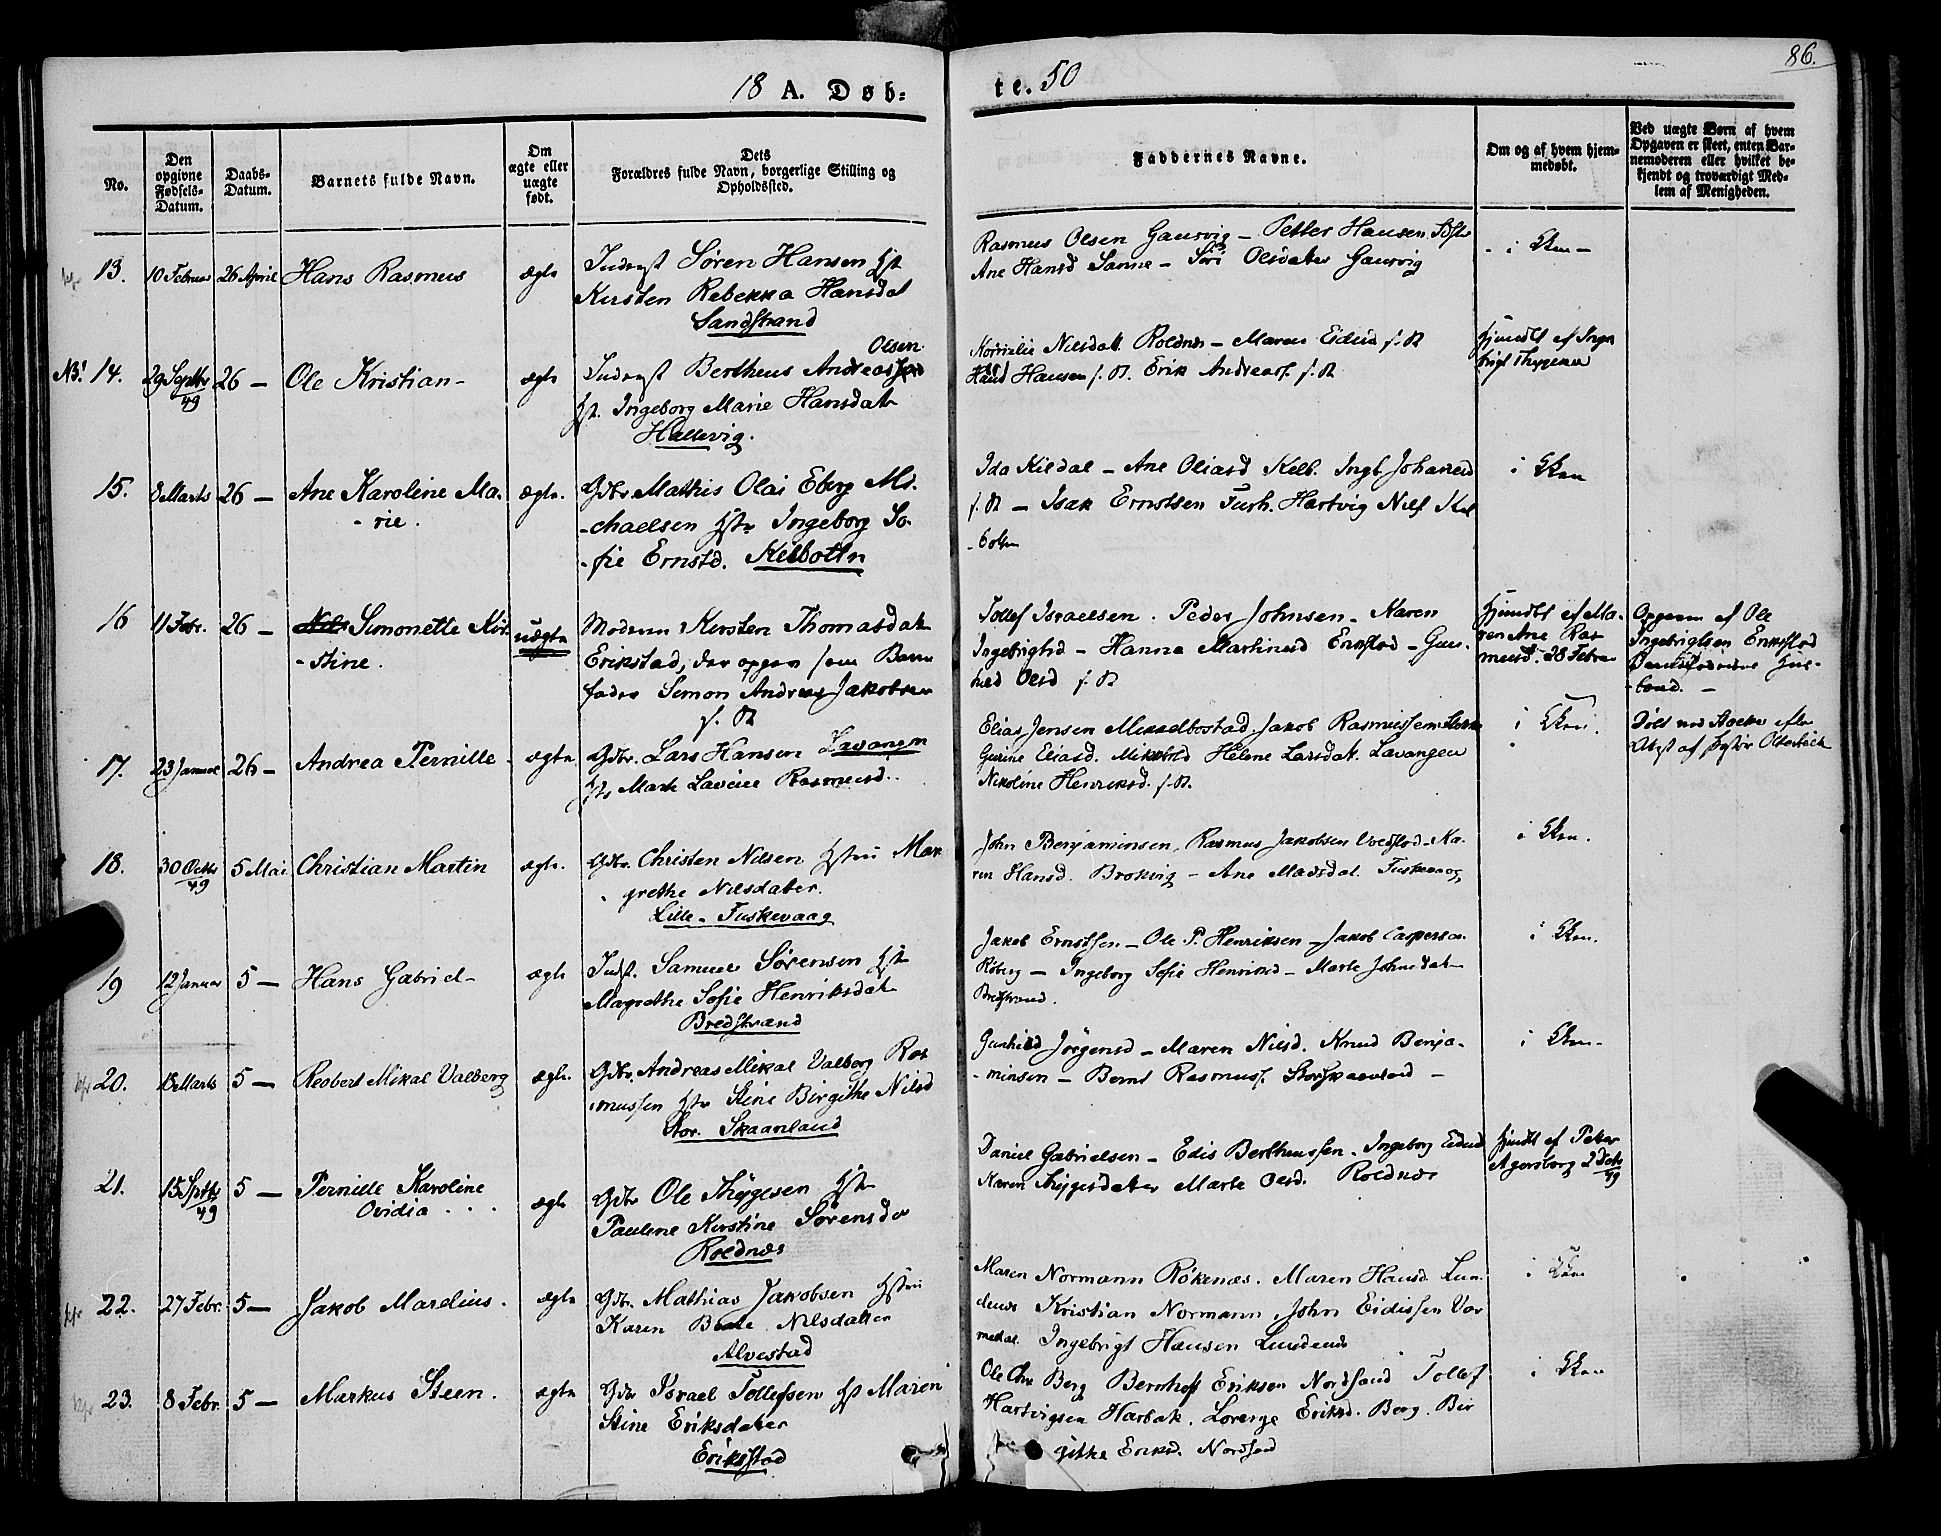 86.
18 A. Døb=
te. 50
No.
Den opgivne Fødsels-Datum.
Daabs-Datum.
Barnets fulde Navn.
Om ægte eller uægte født.
Dets Forældres fulde Navn, borgerlige Stilling og Opholdssted.
Faddernes Navne.
Om og af hvem hjemmedøbt.
Ved uægte Børn af hvem Opgaven er skeet, enten Barnemoderen eller hvilket bekjendt og troværdigt Medlem af Menigheden.
13. 10 Februar 26 April Hans Rasmus ægte
Søren Hansen
Kirsten Rebekka Hansdat
Sandstrand
Rasmus Olsen Gausvig – Petter Hansen
Ane Hansd Sanne – Siri Olsdater Gausvig
14. 29 Septbr 49 26 – Ole Kristian – ægte
Olsen
Bertheus Andreas
Ingeborg Marie Hansdatr
Hallevig.
Nilsdatt. Roldnæs – Maren Eidisd
Hansen Erik Andreas
15. 8 Marts 26 – Ane Karoline Ma-
-rie.
ægte.
Gdbr. Mathis Olai Eberg Mi-
-chaelsen Ingeborg So-
-fie Ernstd. Kilbottn
Ida Kildal – Ane Oliasd Kilb. Ingb. Johannesd
– Isak Ernstsen Hartvig Nils Kil
-botn
i Kken
16 11 Febr. 26 – Simonette Kir-
-stine.
uægte
Moderen Kirsten Thomasdatr
Erikstad, der opgav som Barne
fader Simon Andreas Jakobsen
Tollef Israelsen. Peder Johnsen – Karen
Ingebrigtsd – Hanna Martinusd Erikstad – Gun-
hild Olsd
hjmdbt af Ma-
ren Ane Ras
musd. 28 Febru
Opgaven af Ole
Ingebrigtsen Erikstad
17. 23 Januar 26 – Andrea Pernille – ægte
Gdbr. Lars Hansen Lavangen
Marte Lavine Rasmusd.
Elias Jensen Mikkelbostad Jakob Rasmussen
Gurine Eliasd. Mikkelb. Helene Larsdat. Lavangen
Nikoline Henriksd.
i Kken.
18. 30 Octbr 49 5 Mai Christian Martin ægte.
Gdbr. Christen Nilsen Hstru Mar
grethe Nilsdater.
Lille-Fuskevaag
John Benjaminsen, Rasmus Jakobsen – Ka-
ren Hansd. Brokvig – Ane Madsdat. Fuskevaag
i Kken.
19 12 Januar 5 – Hans Gabriel – ægte
Indst. Samuel Sørensen
Magrethe Sofie Henriksdatr
Bredstrand
Jakob Ernstsen – Ole P. Henriksen – Jakob Caspersen
Røberg – Ingeborg Sofie Henriksd – Marte Johnsdatr
Bredstrand.
i Kken.
20. 18 Marts 5 – Reobert Mikal Valberg ægte.
Gdbr. Andreas Mikal Valborg Ras
mussen Stine Birgithe Nilsd
Stor. Skaanland
Gunhild Jörgensd – Maren Nilsd. Knud Benja-
-minsen – Bernt Rasmuss. Storskaanland –
i Kken –
21. 15 Septbr 49 5 – Pernille Karoline
Ovidia . . .
ægte
Gdbr Ole Thygesen
Pauline Kirstine Sørensdr
Roldnæs
Daniel Gabrielsen – Edis Bertheussen – Ingeborg Eidisd
Karen Thygesdater Marte Olsd. Roldnæs
hjmdbt af Peter
Agersborg 2 Octbr 49
22. 27 Febr. 5 – Jakob Mardius. ægte
Gdbr. Mathias Jakobsen Hstru
Karen Beate Nilsdatter
Alvestad
Maren Normann Rökenæs. Maren Hansd. Lun-
denes Kristian Normann, John Eidissen Vor
medal. Ingebrigt Hansen Lundenes
i Kken
23. 8 Febr. 5 – Markus Steen. ægte
Gdbr Israel Tollefsen Maren
Stine Eriksdater
Eriksstad
Ole Chr Berg Bernhoft Eriksen Nordsand Tollef
Hartvigsen Harbak. Lorenze Eriksd. Berg. Bir
githe Eriksd. Nordsand
i Kken